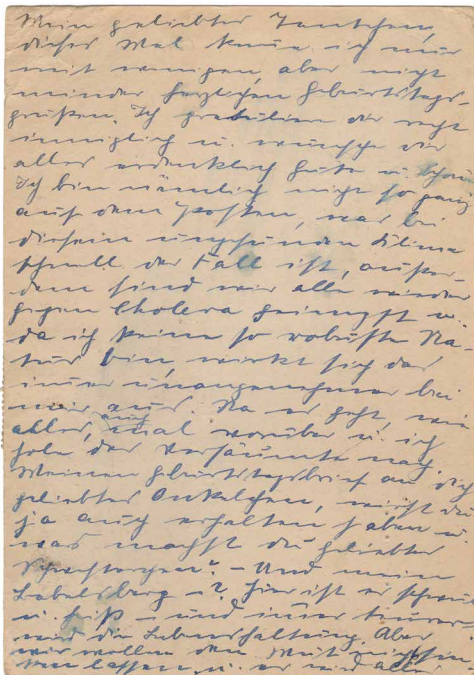 Mein geliebtes Tantchen,
dieses Mal kann ich nur
mit wenigen, aber nicht
minder herzlichen Geburtstags-
grüßen. Ich gratuliere dir recht
inniglich u. wünsche dir
alles erdenklich Gute u. Schöne
Ich bin nämlich nicht so ganz
auf dem Posten, was bei
diesem ungesunden Klima
schnell der Fall ist, außer-
dem sind wir alle wieder
gegen Cholera geimpft u.
da ich keine so robuste Na-
tur bin, wirkt sich das
immer unangenehmer bei
mir aus. Na es geht, wie
alles, auch mal vorüber u. ich
hole das Versäumte nach.
Meinen Geburtstagsbrief an dich
geliebtes Onkelchen, wirst du
ja auch erhalten haben u
was machst du geliebter
? – Und mein
Babelsberg –? Hier ist es schwül
u. heiß – und immer teurer
wird die Lebenshaltung. Aber
wir wollen den Mut nicht sin-
ken lassen u. es wird alles